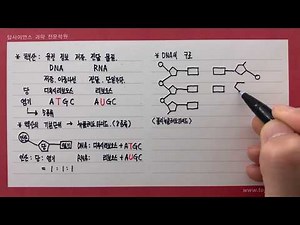 * 핵산 : 유전 정보 저장, 전달 물질.
DNA RNA
저장, 이중나선 전달, 단일가닥
당 디옥시리보스 리보스
염기 A T G C A U G C
* 핵산의 기본단위 → 뉴클레오타이드
인산 당 염기
DNA : 디옥시리보스 + ATGC
RNA : 리보스 + AUGC
인산 : 당 : 염기
= 1 : 1 : 1
* DNA의 구조
(폴리뉴클레오타이드)